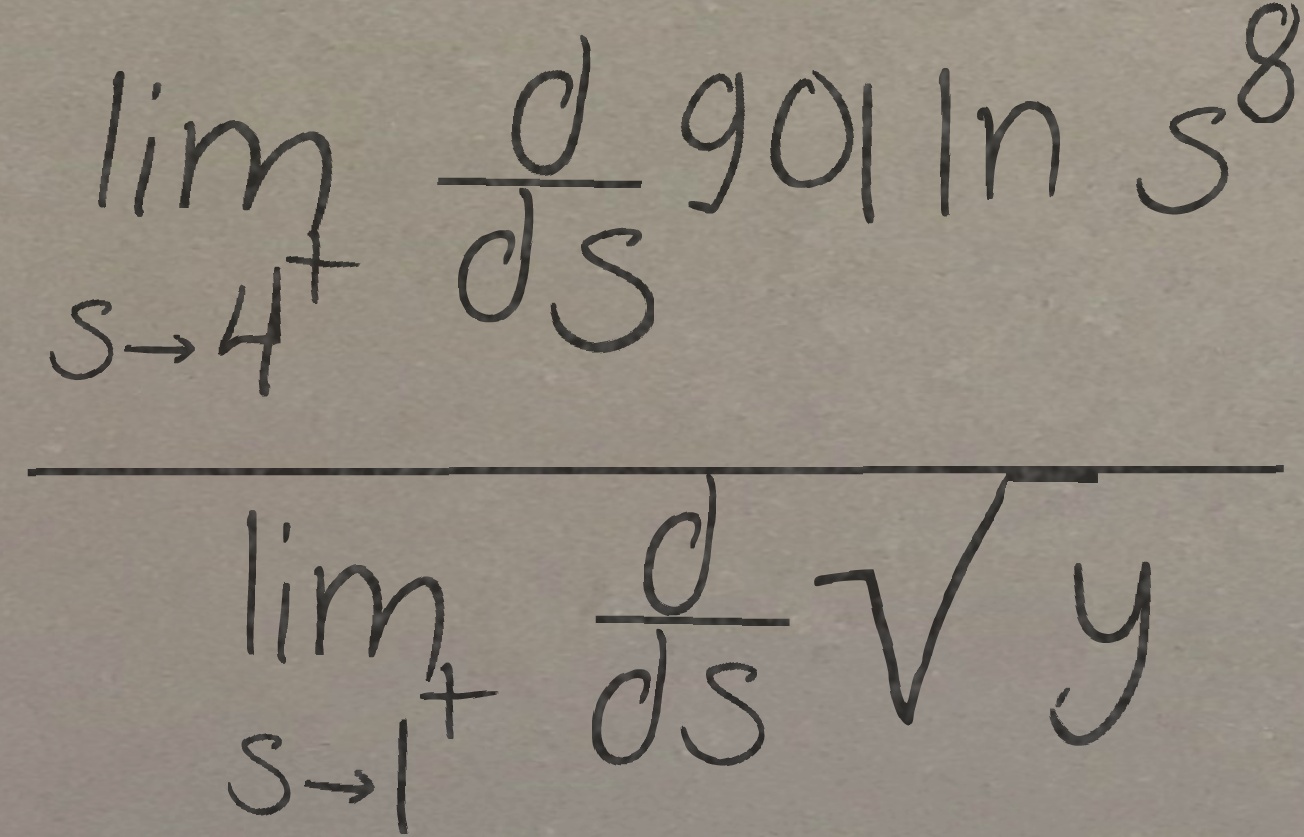 \frac{\lim_{s \to 4^+} \frac{d}{ds} 901 \ln s^8}{\lim_{s \to 1^+} \frac{d}{ds} \sqrt{y}}